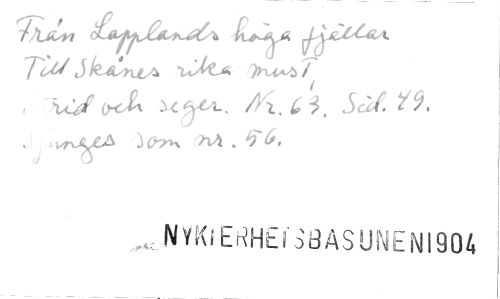 Från Lapplands höga fjällar
Till Skånes rika must,
Strid och seger. Nr. 63. Sid. 49.
Sjunges som nr. 56.
NYKTERHETSBASUNEN 1904